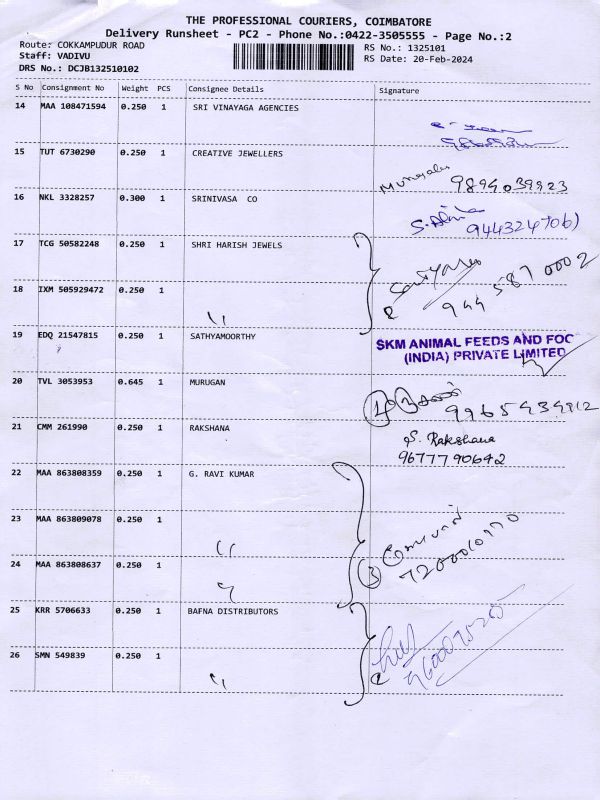 THE PROFESSIONAL COURIERS, COIMBATORE
Delivery Runsheet - PC2 - Phone No.:0422-3505555 - Page No.:2
Route: COKKAMPUDUR ROAD
RS No.: 1325101
Staff: VADIVU
RS Date: 20-Feb-2024
DRS No.: DCJB132510102
S No Consignment No Weight PCS Consignee Details Signature
14 MAA 108471594 0.250 1 SRI VINAYAGA AGENCIES
15 TUT 6730290 0.250 1 CREATIVE JEWELLERS
9894039923
16 NKL 3328257 0.300 1 SRINIVASA CO
17 TCG 50582248 0.250 1 SHRI HARISH JEWELS
944 587 0002
18 IXM 505929472 0.250 1 〃
2
19 EDQ 21547815 0.250 1 SATHYAMOORTHY
SKM ANIMAL FEEDS AND FOO
(INDIA) PRIVATE LIMITED
20 TVL 3053953 0.645 1 MURUGAN
21 CMM 261990 0.250 1 RAKSHANA
S. Rakshana
9677790642
22 MAA 863808359 0.250 1 G. RAVI KUMAR
23 MAA 863809078 0.250 1 〃
24 MAA 863808637 0.250 1 〃
3
25 KRR 5706633 0.250 1 BAFNA DISTRIBUTORS
26 SMN 549839 0.250 1 〃